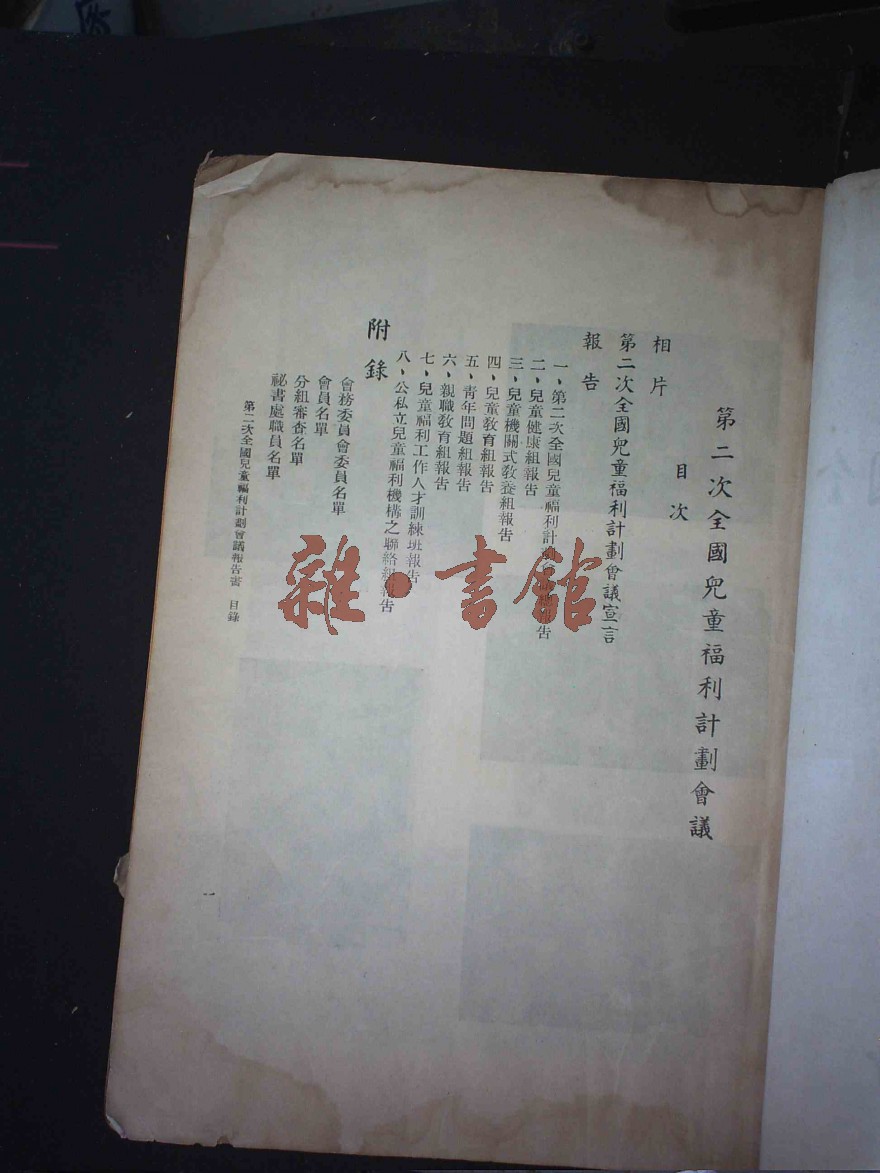 第二次全國兒童福利計劃會議
目次
相片
第二次全國兒童福利計劃會議宣言
報告
一、第二次全國兒童福利計劃報告
二、兒童健康組報告
三、兒童機關式教養組報告
四、兒童教育組報告
五、靑年問題組報告
六、親職教育組報告
七、兒童福利工作人才訓練班報告
八、公私立兒童福利機構之聯絡組報告
附錄
會務委員會委員名單
會員名單
分組審查名單
祕書處職員名單
第二次全國兒童福利計劃會議報告書 目錄
一
雜·書館